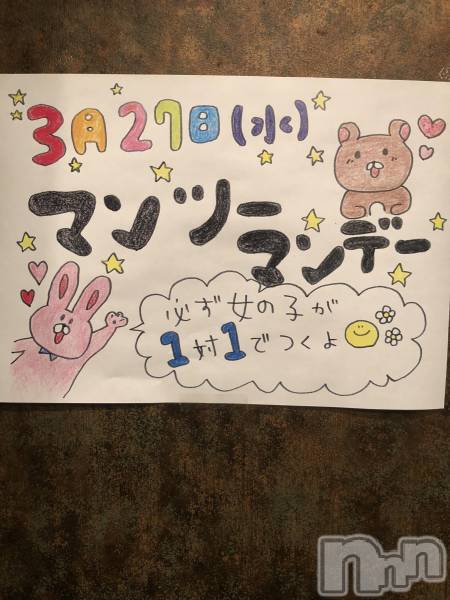 3月27日(水)
マンツー
マンデー
必ず女の子が
1対1でつくよ
nnn